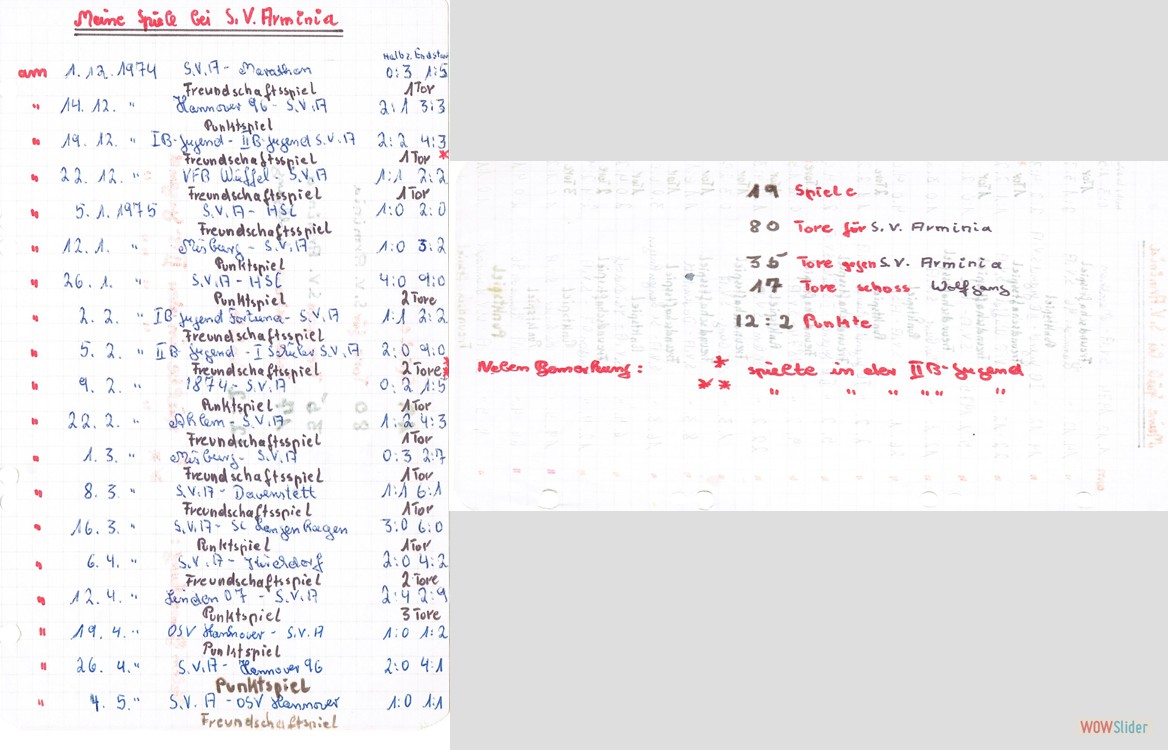 Meine Spiele bei S.V. Arminia
Halbz. Endsta
am 1. 12. 1974 S.V.17 - Marathon 0:3 1:5
Freundschaftsspiel 1 Tor
" 14. 12. " Hannover 96 - S.V.17 2:1 3:3
Punktspiel
" 19. 12. " IB-Jugend - IIB Jugend S.V.17 2:2 4:3
Freundschaftsspiel 1 Tor *
" 22. 12. " VFB Wülfel - S.V.17 1:1 2:2
Freundschaftsspiel 1 Tor
" 5. 1. 1975 S.V.17 - HSC 1:0 2:0
Freundschaftsspiel
" 12. 1. " Misburg - S.V.17 1:0 3:2
Punktspiel
" 26. 1. " S.V.17 - HSC 4:0 9:0
Punktspiel 2 Tore
" 2. 2. " IB Jugend Fortuna - S.V.17 1:1 2:2
Freundschaftsspiel
" 5. 2. " IIB Jugend - I Schüler S.V.17 2:0 9:0
Freundschaftsspiel 2 Tore *
" 9. 2. " 1874 - S.V.17 0:2 1:5
Punktspiel 1 Tor
" 22. 2. " Ahlem - S.V.17 1:2 4:3
Freundschaftsspiel 1 Tor
" 1. 3. " Misburg - S.V.17 0:3 2:7
Freundschaftsspiel 1 Tor
" 8. 3. " S.V.17 - Davenstett 1:1 6:1
Freundschaftsspiel 1 Tor
" 16. 3. " S.V.17 - SC Langenhagen 3:0 6:0
Punktspiel 1 Tor
" 6. 4. " S.V.17 - 2:0 4:2
Freundschaftsspiel 2 Tore
" 12. 4. " Linden 07 - S.V.17 2:4 2:9
Punktspiel 3 Tore
" 19. 4. " OSV Hannover - S.V.17 1:0 1:2
Punktspiel
" 26. 4. " S.V.17 - Hannover 96 2:0 4:1
Punktspiel
" 4. 5. " S.V. 17 - OSV Hannover 1:0 1:1
Freundschaftsspiel
19 Spiele
80 Tore für S.V. Arminia
35 Tore gegen S.V. Arminia
17 Tore schoss Wolfgang
12:2 Punkte
Neben Bemerkung: * spielte in der IIB-Jugend
** " " " " " "
WOWSlider